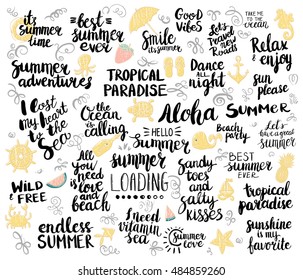 it's
Summer
time
best
summer
ever
Smile
it's summer
Good
vibes
Let's
travel
new
Road
TAKE ME
TO THE
OCEAN
Relax
& enjoy
Summer
adventures
TROPICAL
PARADISE
Dance
all
night
sun
please
I lost
my heart
to the
Sea
the
ocean
is
calling
Aloha
SUMMER
HELLO
SUMMER
Beach
party
Let's
have a great
summer
All
you
need is
love
and
beach
summer
LOADING
Sandy
toes
and
salty
kisses
BEST
SUMMER
EVER
WILD
& FREE
tropical
paradise
endless
SUMMER
I need
vitamin
sea
Summer
love
sunshine
is my
favorite
484859260